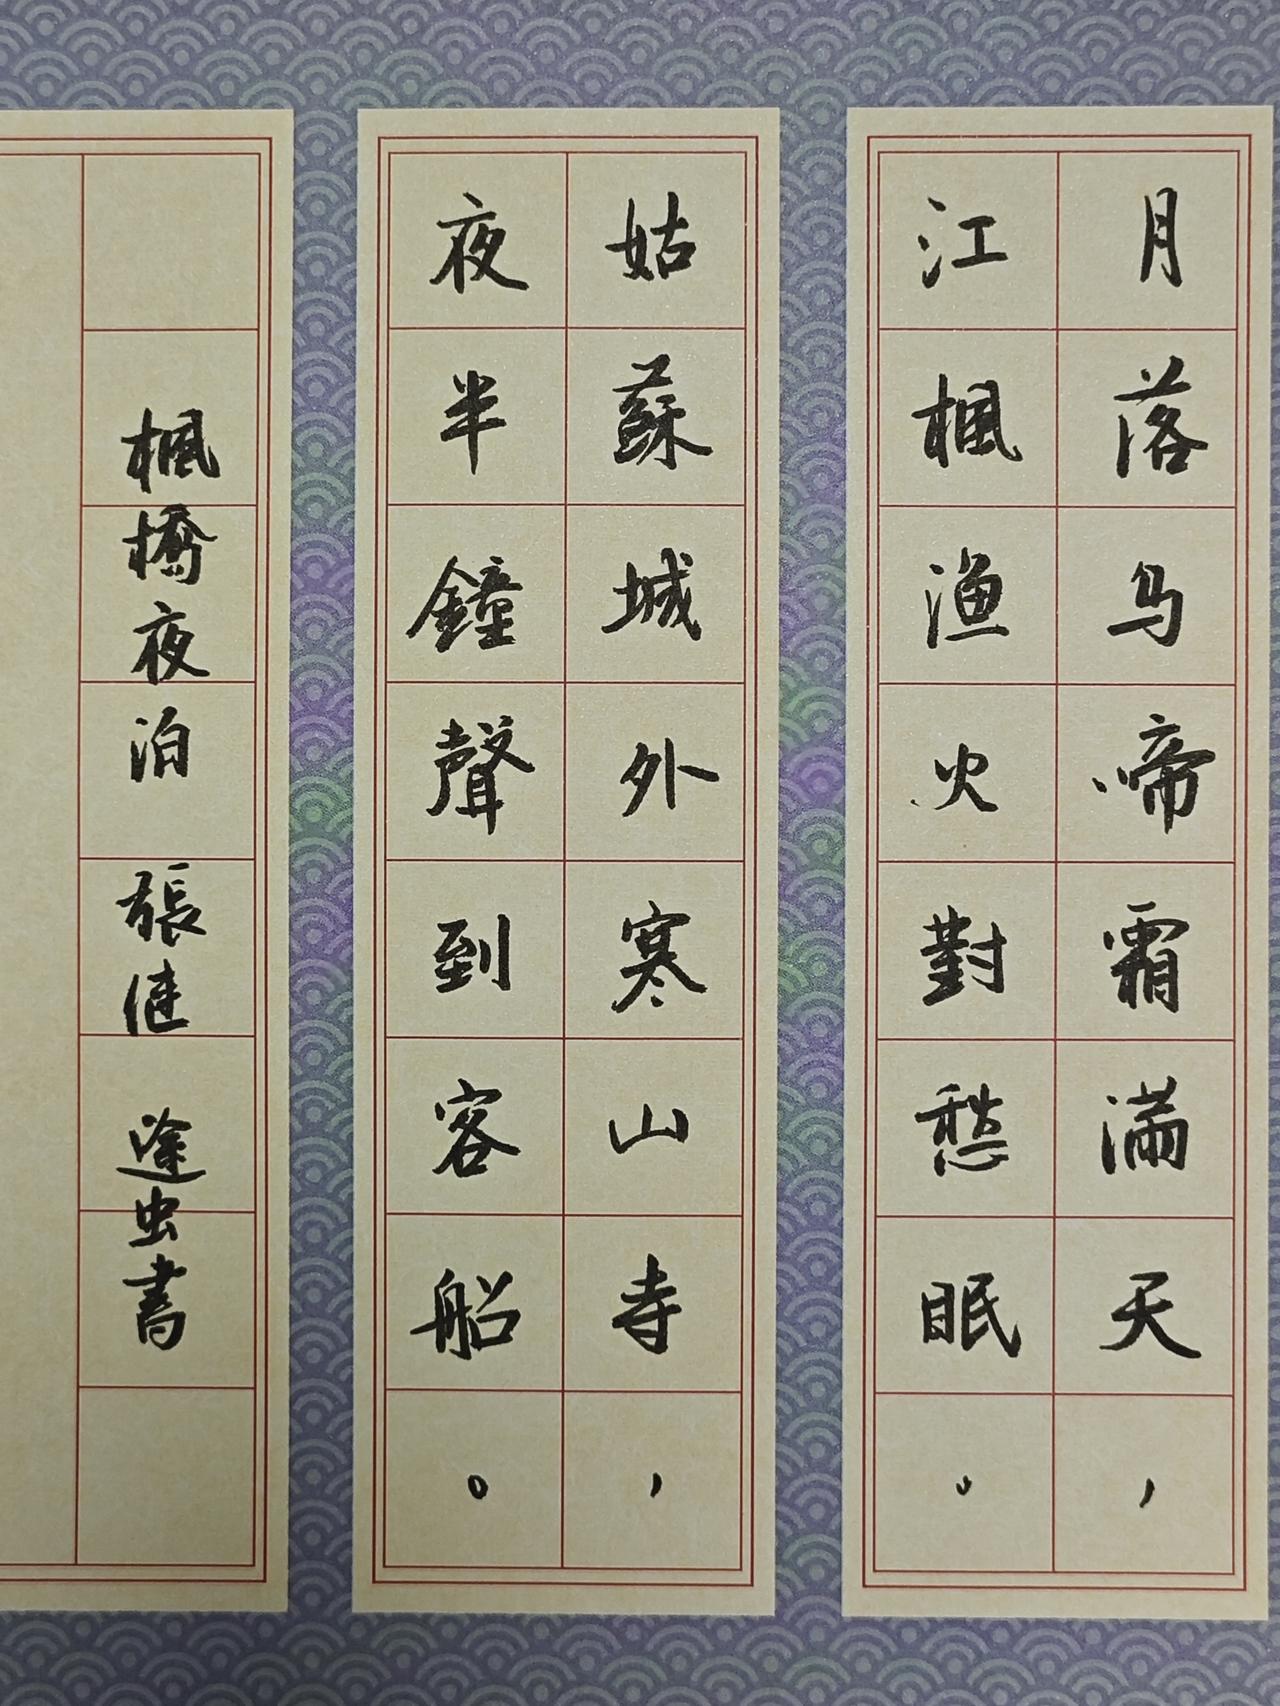 月落乌啼霜满天，
江楓渔火對愁眠。
姑蘇城外寒山寺，
夜半鐘聲到客船。
楓橋夜泊 張继 途虫書